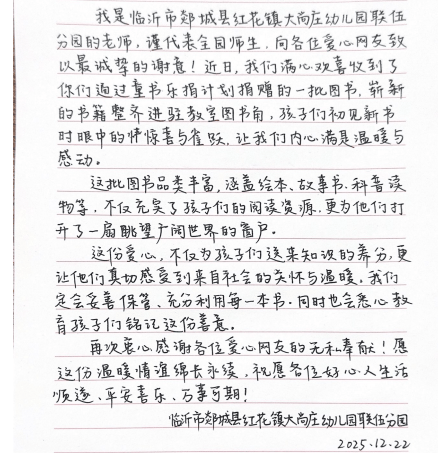 我是临沂市郯城县红花镇大尚庄幼儿园联伍
分园的老师，谨代表全园师生，向各位爱心网友致
以最诚挚的谢意！近日，我们满心欢喜收到了
你们通过童书乐捐计划捐赠的一批图书，崭新
的书籍整齐进驻教室图书角，孩子们初见新书
时眼中的惊喜与雀跃，让我们内心满是温暖与
感动。
这批图书品类丰富，涵盖绘本、故事书、科普读
物等，不仅充实了孩子们的阅读资源，更为他们打
开了一扇眺望广阔世界的窗户。
这份爱心，不仅为孩子们送来知识的养分，更
让他们真切感受到来自社会的关怀与温暖。我们
定会妥善保管、充分利用每一本书，同时也会悉心教
育孩子们铭记这份善意。
再次衷心感谢各位爱心网友的无私奉献！愿
这份温暖情谊绵长永续，祝愿各位好心人生活
顺遂、平安喜乐、万事可期！
临沂市郯城县红花镇大尚庄幼儿园联伍分园
2025.12.22